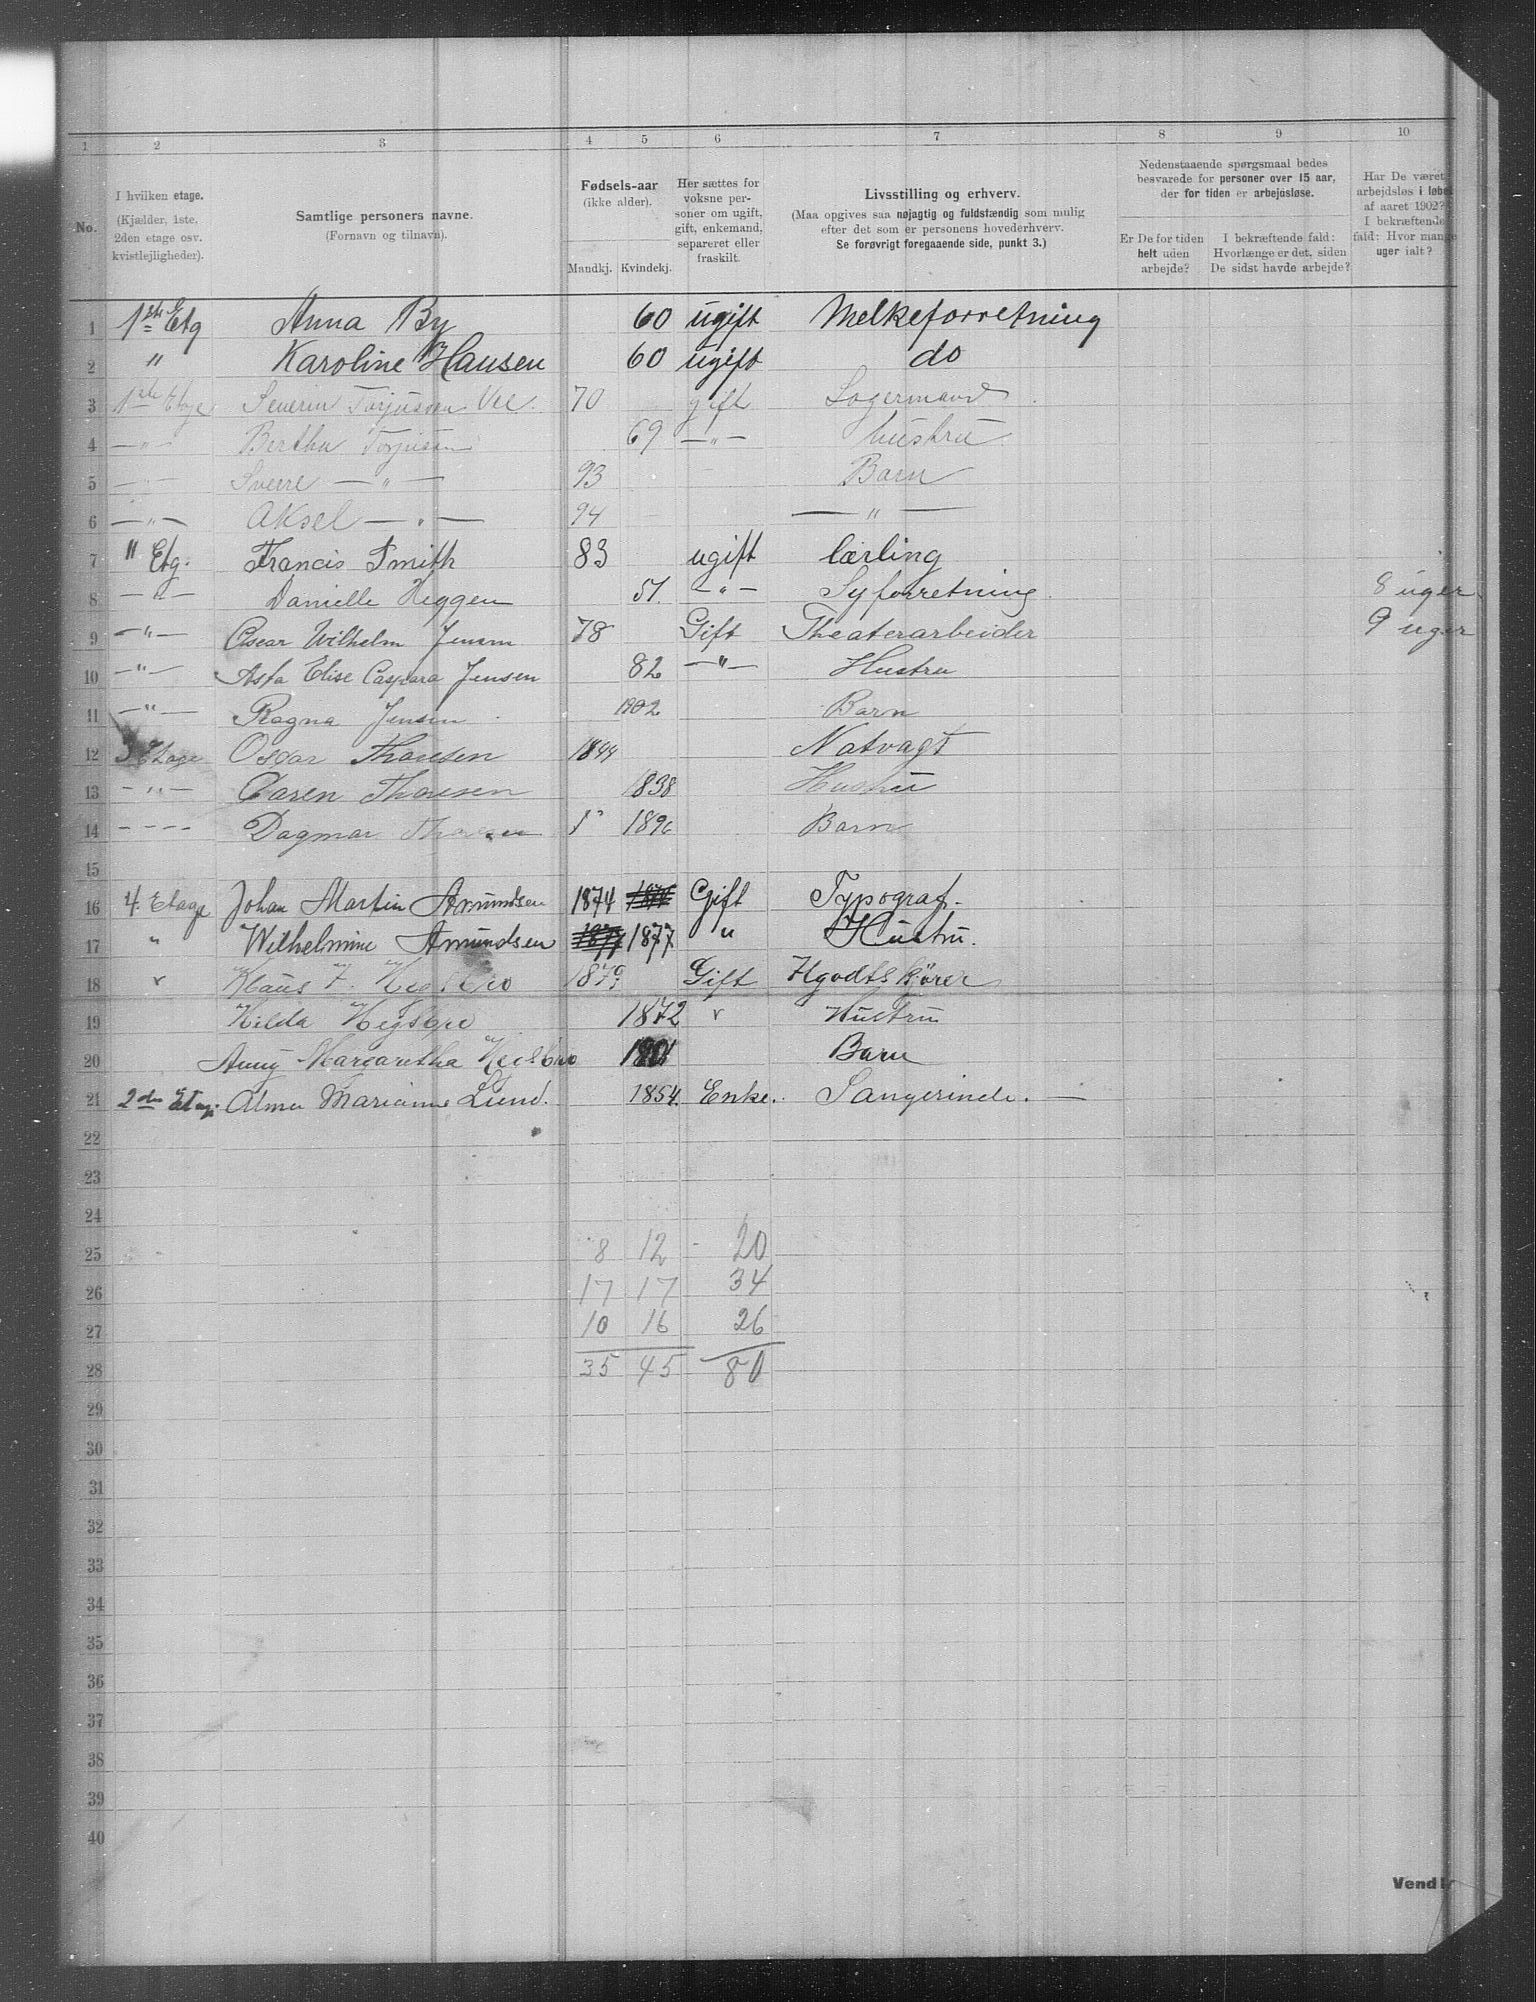 1 2 3 4 5 6 7 8 9 10
No.
I hvilken etage.
(Kjælder, 1ste,
2den etage osv.
kvistlejligheder).
Samtlige personers navne.
(Fornavn og tilnavn).
Fødsels-aar
(ikke alder).
Mandkj. Kvindekj.
Her sættes for
voksne per-
soner om ugift,
gift, enkemand,
separeret eller
fraskilt.
Livsstilling og erhverv.
(Maa opgives saa nøjagtig og fuldstændig som mulig
efter det som er personens hovederhverv.
Se forøvrigt foregaaende side, punkt 3.)
Nedenstaaende spørgsmaal bedes
besvarede for personer over 15 aar,
der for tiden er arbejdsløse.
Er De for tiden
helt uden
arbejde?
I bekræftende fald:
Hvorlænge er det, siden
De sidst havde arbejde?
Har De været
arbejdsløs i løbet
af aaret 1902?
I bekræftende
fald: Hvor mange
uger ialt?
1 1ste Etg Anna By 60 ugift Melkeforretning
2 " Karoline Hansen 60 ugift do
3 1ste Etage Severin Torjussen Vee. 70 gift Logermand
4 — " — Bertha Torjusen 69 — " — hustru
5 — " — Sverre — " — 93 Barn
6 — " — Aksel — " — 94 — " —
7 " Etg. Francis Smith 83 ugift lærling
8 — " — Danielle Heggen 51. — " — Syforretning 8 uger
9 — " — Oscar Wilhelm Jensen 78 Gift Theaterarbeider 9 uger
10 — " — Asta Elise Caspara Jensen 82 — " — Hustru
11 — " — Ragna Jensen 1902 Barn
12 3 Etage Oscar Thoresen 1844 Natvagt
13 — " — Caren Thoresen 1838 Hustru
14 - - - - Dagmar 1896 Barn
15
16 4. Etage Johan Martin Amundsen 1874 Gift Typograf.
17 " Wilhelmine Amundsen 1877 " Hustru.
18 Klaus 1879 Gift
19 Hilda 1872 Hustru
20 Margaretha 1901 Barn
21 2den Etag. Alma Marianne Lund. 1854. Enke. Sangerinde. —
22
23
24
25 8 12 - 20
26 17 17 34
27 10 16 26
28 35 45 80
29
30
31
32
33
34
35
36
37
38
39
40
Vend